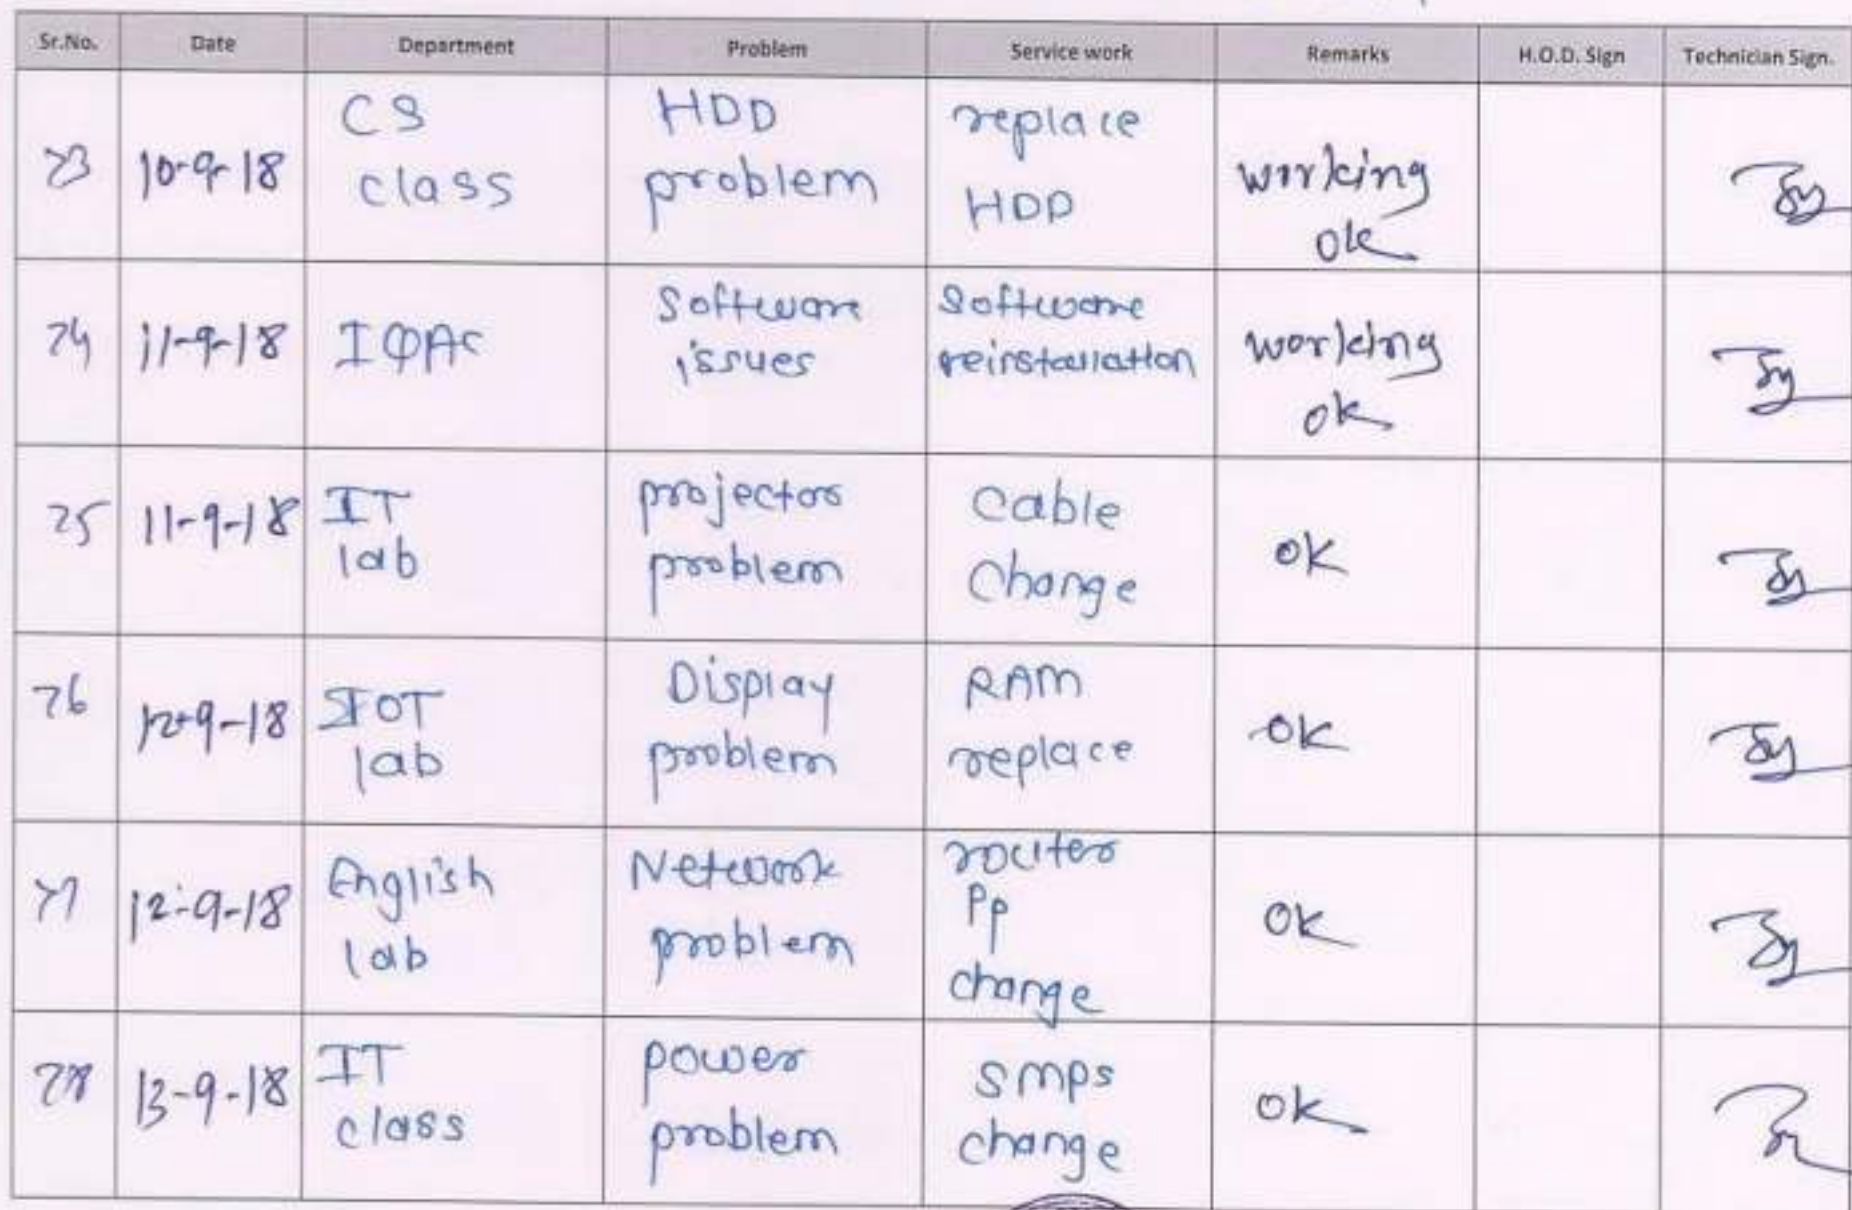 Sr.No. Date Department Problem Service work Remarks H.O.D. Sign Technician Sign.
23 10-9-18 CS class HDD problem replace HDD working ok
24 11-9-18 IQAC Software issues Software reinstallation working ok
25 11-9-18 IT lab projector problem Cable Change ok
26 12-9-18 IOT lab Display problem RAM replace ok
27 12-9-18 English lab Network problem router Pp change ok
28 13-9-18 IT class power problem smps change ok